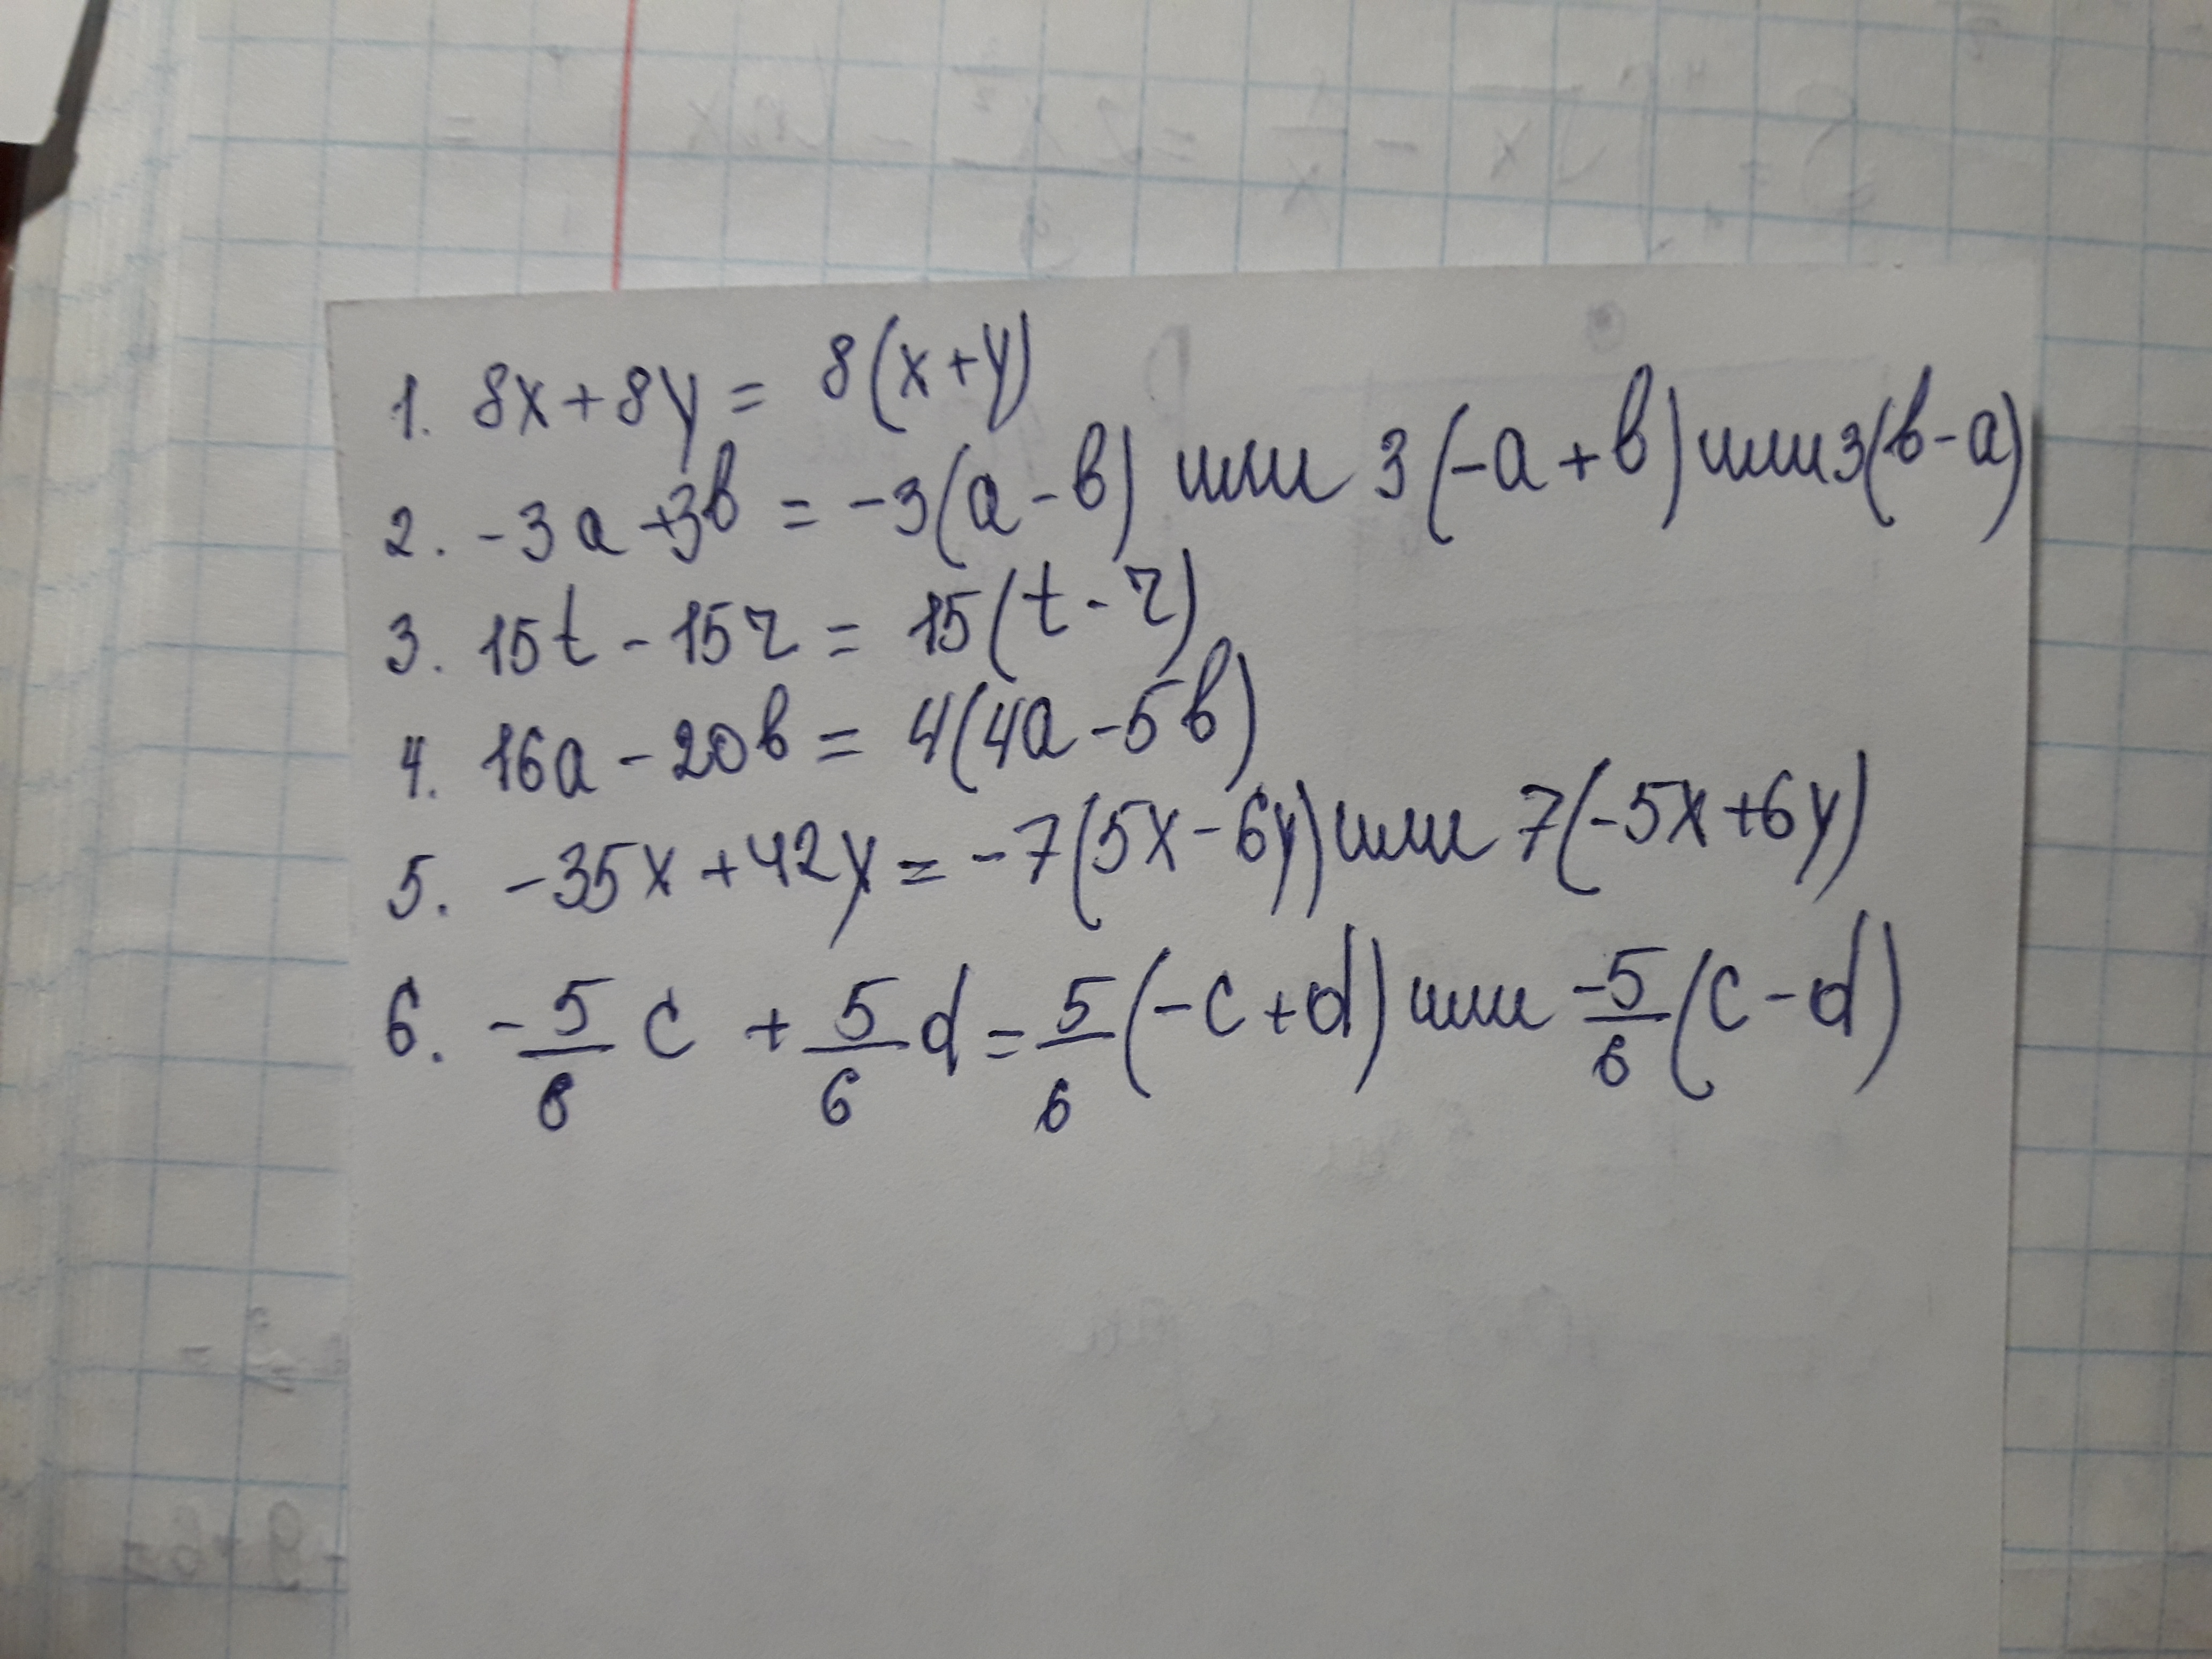 1. 8x+8y = 8(x+y)
2. -3a+3b = -3(a-b) или 3(-a+b) или 3(b-a)
3. 15t - 15r = 15(t-r)
4. 16a - 20b = 4(4a-5b)
5. -35x+42y = -7(5x-6y) или 7(-5x+6y)
6. -5/6 c + 5/6 d = 5/6 (-c+d) или -5/6 (c-d)